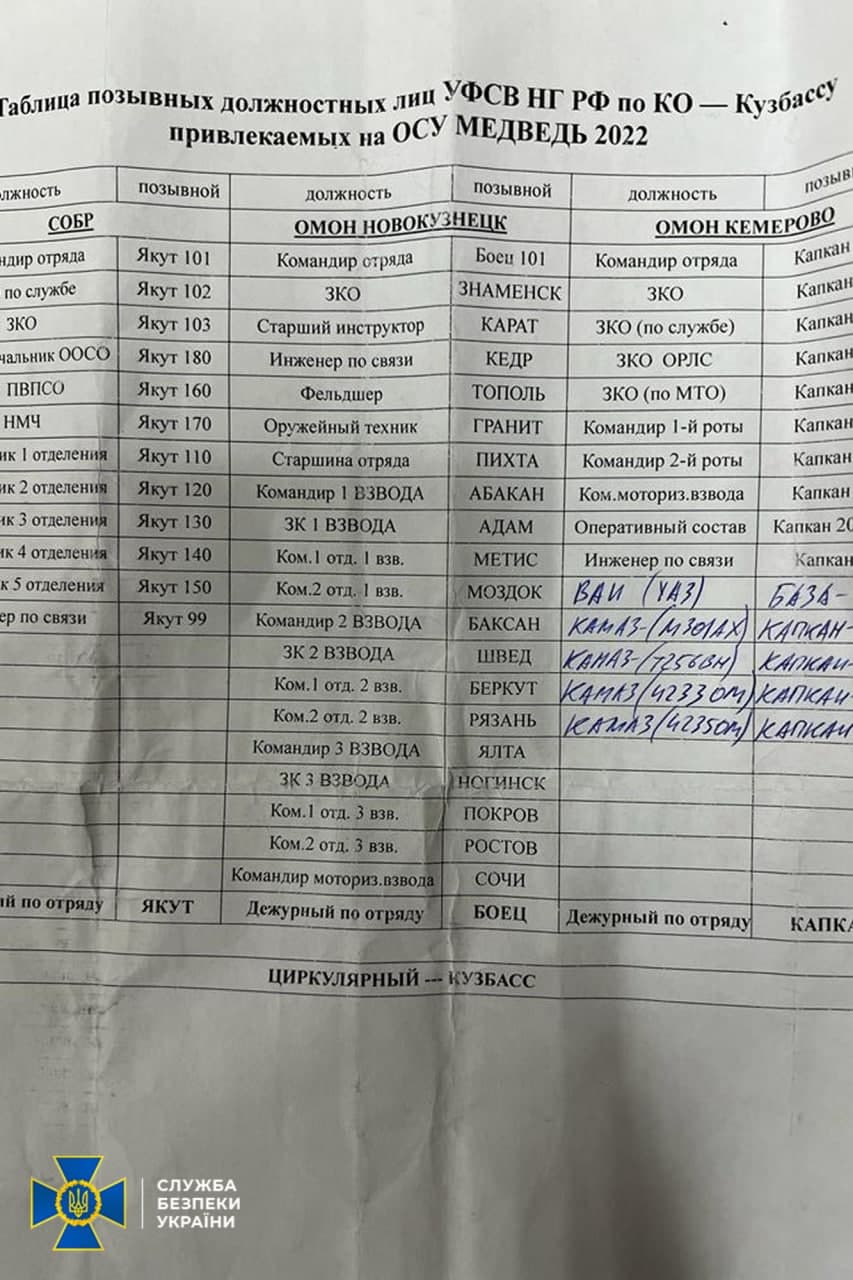 Таблица позывных должностных лиц УФСВ НГ РФ по КО — Кузбассу
привлекаемых на ОСУ МЕДВЕДЬ 2022
позывной должность позывной должность
СОБР ОМОН НОВОКУЗНЕЦК ОМОН КЕМЕРОВО
отряда Якут 101 Командир отряда Боец 101 Командир отряда Капкан
по службе Якут 102 ЗКО ЗНАМЕНСК ЗКО Капкан
ЗКО Якут 103 Старший инструктор КАРАТ ЗКО (по службе) Капкан
ООСО Якут 180 Инженер по связи КЕДР ЗКО ОРЛС Капкан
ПВПСО Якут 160 Фельдшер ТОПОЛЬ ЗКО (по МТО) Капкан
НМЧ Якут 170 Оружейный техник ГРАНИТ Командир 1-й роты Капкан
1 отделения Якут 110 Старшина отряда ПИХТА Командир 2-й роты Капкан
2 отделения Якут 120 Командир 1 ВЗВОДА АБАКАН Ком.моториз.взвода Капкан
3 отделения Якут 130 ЗК 1 ВЗВОДА АДАМ Оперативный состав Капкан
4 отделения Якут 140 Ком.1 отд. 1 взв. МЕТИС Инженер по связи Капкан
5 отделения Якут 150 Ком.2 отд. 1 взв. МОЗДОК ВАИ (УАЗ) БАЗА-
по связи Якут 99 Командир 2 ВЗВОДА БАКСАН КАМАЗ-(М301АХ) КАПКАН-
ЗК 2 ВЗВОДА ШВЕД КАМАЗ-(7256ВН) КАПКАН-
Ком.1 отд. 2 взв. БЕРКУТ КАМАЗ(4233ОМ) КАПКАН-
Ком.2 отд. 2 взв. РЯЗАНЬ КАМАЗ(4235ОМ) КАПКАН
Командир 3 ВЗВОДА ЯЛТА
ЗК 3 ВЗВОДА НОГИНСК
Ком.1 отд. 3 взв. ПОКРОВ
Ком.2 отд. 3 взв. РОСТОВ
Командир моториз.взвода СОЧИ
по отряду ЯКУТ Дежурный по отряду БОЕЦ Дежурный по отряду
ЦИРКУЛЯРНЫЙ --- КУЗБАСС
СЛУЖБА
БЕЗПЕКИ
УКРАЇНИ